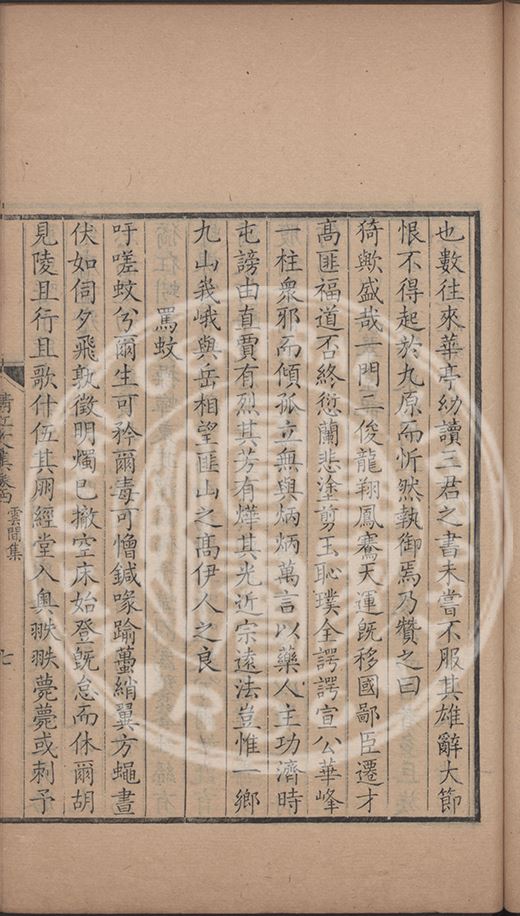 也數往來華亭幼讀三君之書未嘗不服其雄辭大節
恨不得起於九原而忻然執御焉乃贊之曰
猗歟盛哉一門二俊龍翔鳳騫天運旣移國鄙臣遷才
高匪福道否終愆蘭悲塗剪玉恥璞全諤諤宣公華峰
一柱衆邪而傾孤立無與炳炳萬言以藥人主功濟時
屯謗由直賈有烈其芳有燁其光近宗遠法豈惟一鄉
九山㠬峨與岳相望匪山之高伊人之良
罵蚊
吁嗟蚊兮爾生可矜爾毒可憎鍼喙踰蠆綃翼方蠅晝
伏如伺夕飛孰徵明燭巳撤空床始登旣怠而休爾胡
見陵且行且歌什伍其朋經堂入奥翐翐薨薨或刺予
清江文集卷 雲間集
七